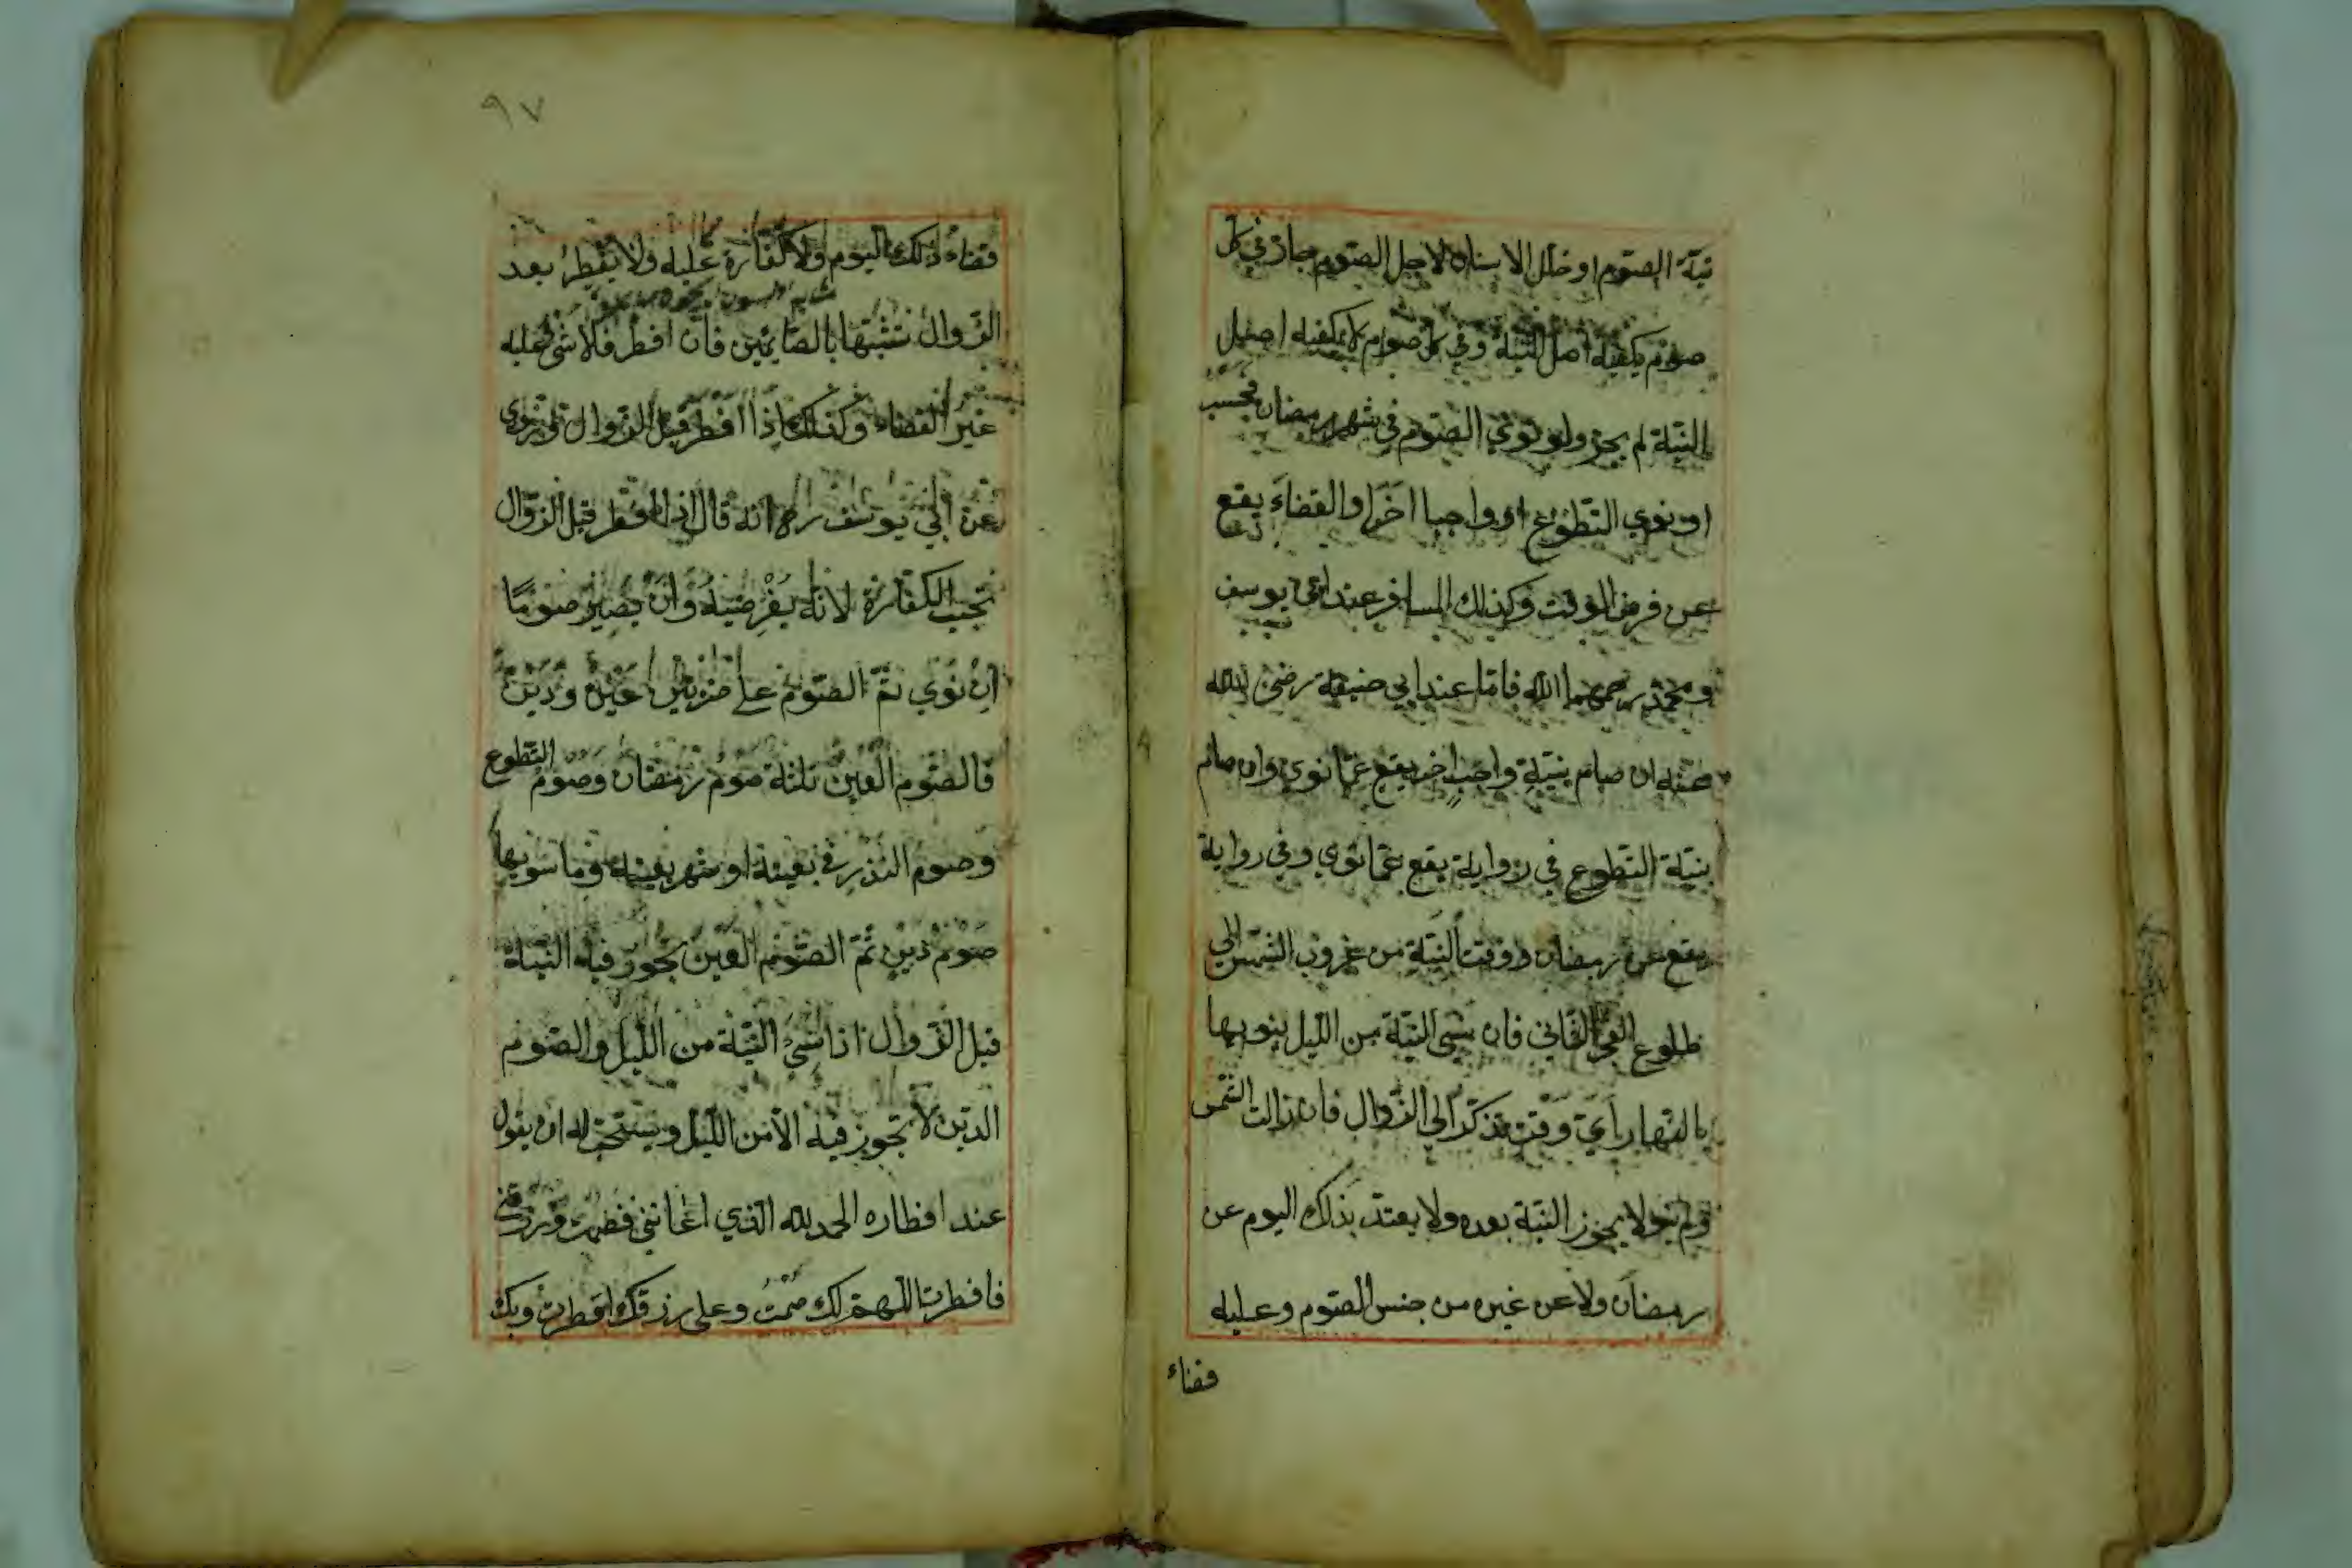 نيّة الصّوم او خلل الاسنان لاجل الصّوم جاز في كل
صوم يكفيه اصل النيّة وفي كل صوم لا يكفيه اصل
النيّة لم يجز ولو نوي الصّوم في شهر رمضان فحسب
او نوي التّطوّع او واجبا اخر او القضاء يقع
عن فرض الوقت وكذلك المسافر عند ابي يوسف
ومحمّد رحمهما الله فامّا عند ابي حنيفة رضي الله
عنه ان صام بنيّة واجب اخر يقع عمّا نوي وان صام
بنيّة التّطوع في رواية يقع عمّا نوي وفي رواية
يقع عن رمضان ووقت النيّة من غروب الشمس الي
طلوع الفجر الثاني فان نسي النيّة من اللّيل ينويها
بالنّهار اي وقت تذكّر الي الزّوال فان زالت الشّمس
ولم ينو لا يجوز النيّة بعده ولا يعتدّ بذلك اليوم عن
رمضان ولا عن غيره من جنس الصّوم وعليه
قضاء
٩٧
قضاء ذلك اليوم ولا كفّارة عليه ولا يفطر بعد
الزّوال تشبّها بالصّائمين فان افطر فلا شئ عليه
غير القضاء وكذلك اذا افطر قبل الزّوال وروي
عن ابي يوسف انه قال اذا افطر قبل الزّوال
تجب الكفّارة لانه بفرضيّة وان يصير صومًا
ان نوي ثمّ الصّوم علي ضربين عين ودين
فالصّوم العين ثلثة صوم رمضان وصوم التّطوع
وصوم النّذر في بعينه او شهر بعينه وما سويها
صوم دين ثمّ الصّوم العين يجوز فيه النيّة
قبل الزّوال اذا نسي النيّة من اللّيل والصّوم
الدّين لا تجوز فيه الّا من اللّيل ويستحبّ له ان يقول
عند افطاره الحمد لله الّذي اعانني فصمت ورزقني
فافطرت اللّهمّ لك صمت وعلي رزقك افطرت وبك